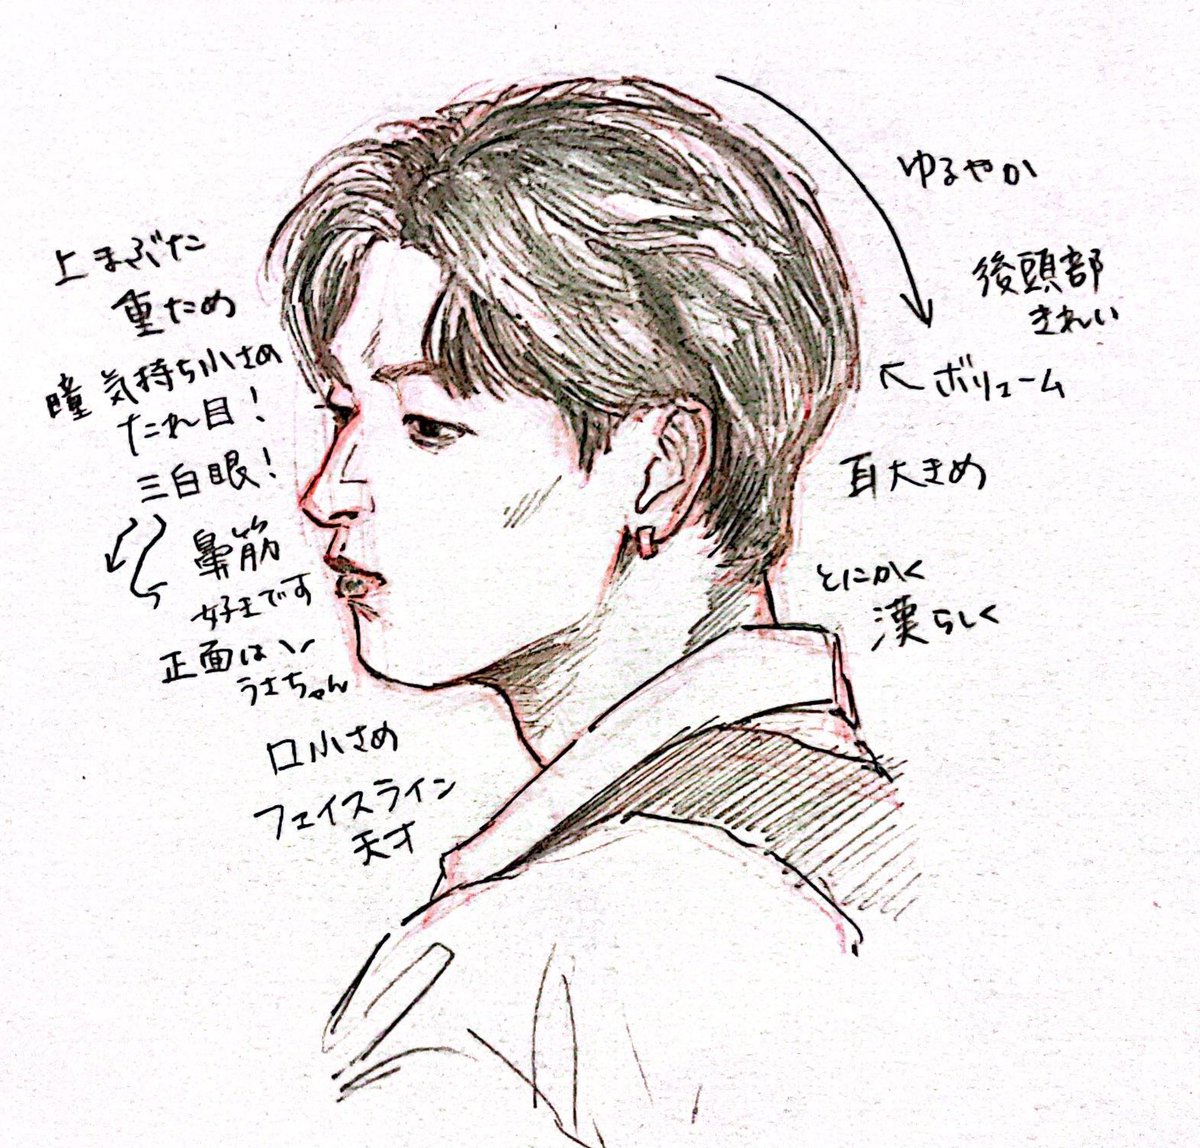 上まぶた
重ため
瞳 気持ち小さめ
たれ目！
三白眼！
鼻筋
好きです
正面は
うさちゃん
口小さめ
フェイスライン
天才
ゆるやか
後頭部
きれい
ボリューム
耳大きめ
とにかく
漢らしく